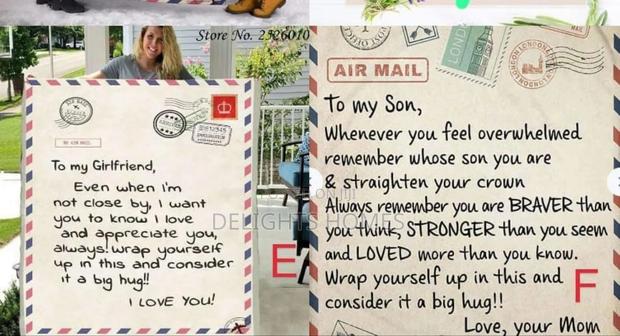 Store No. 2526010
To my Girlfriend,
Even when i'm
not close by, I want
you to know I love
and appreciate you,
always! wrap yourself
up in this and consider
it a big hug!!
I LOVE YOU!
E
LONDON
AIR MAIL
To my Son,
Whenever you feel overwhelmed
remember whose son you are
& straighten your crown
Always remember you are BRAVER than
you think, STRONGER than you seem
and LOVED more than you know.
Wrap yourself up in this and
consider it a big hug!!
Love, your Mom
F
DELIGHTS HOMES